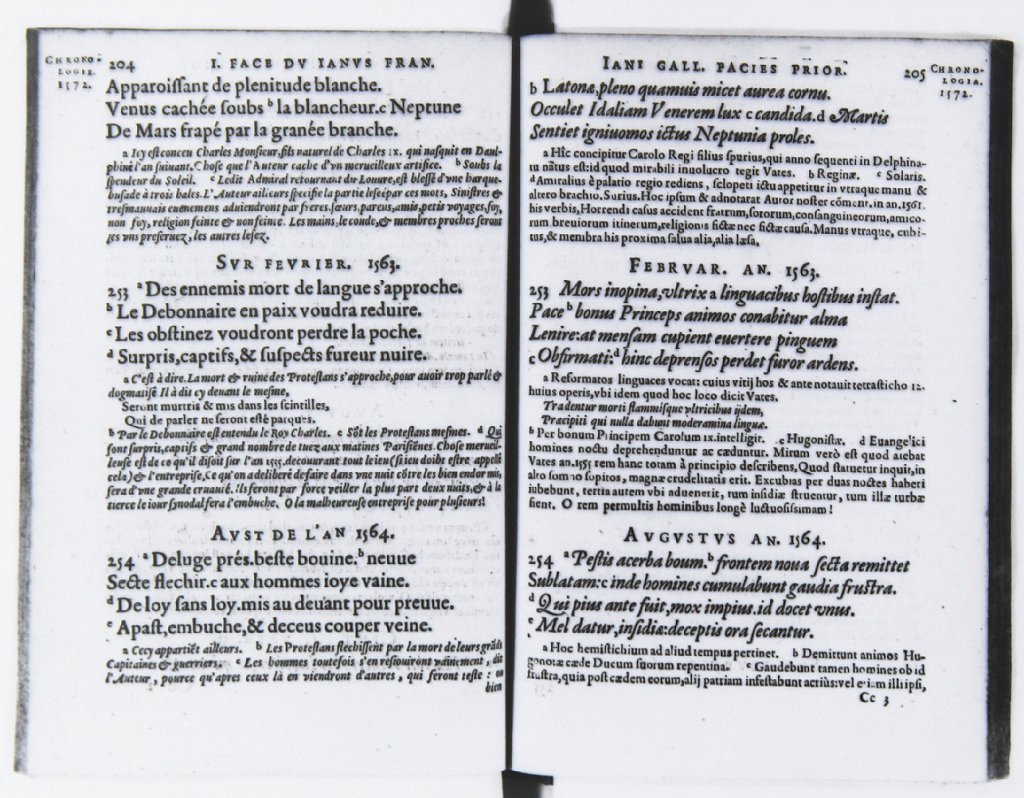 CHRONO-
LOGIE.
1572.
204 I. FACE DV IANVS FRAN.
Apparoiſſant de plenitude blanche.
Venus cachée ſoubs ᵇ la blancheur.c Neptune
De Mars frapé par la granée branche.
a Icy eſt conceu Charles Monſieur, fils naturel de Charles ix. qui naſquit en Daul-
phiné l'an ſuiuant. Choſe que l'Auteur cache d'vn merueilleux artifice. ᵇ Soubs la
ſpendeur du Soleil. ᶜ Ledit Admiral retournant du Louure, eſt bleſſé d'vne harque-
buſade à trois bales. L'Auteur ailleurs ſpecifie la partie leſée par ces mots, Siniſtres &
treſmauuais euenemens aduiendront par freres, ſœurs, parens, amis, petis voyages, foy,
non foy, religion feinte & non feinte. Les mains, le coude, & membres proches ſeront
ges vns preſeruez, les autres leſez.
SVR FEVRIER. 1563.
253 ᵃ Des ennemis mort de langue s'approche.
ᵇ Le Debonnaire en paix voudra reduire.
ᶜ Les obſtinez voudront perdre la poche.
ᵈ Surpris, captifs, & ſuſpects fureur nuire.
a C'eſt à dire. La mort & ruine des Proteſtans s'approche, pour auoir trop parlé &
dogmatiſé Il à dit cy deuant le meſme,
Seront murtris & mis dans les ſcintilles,
Qui de parler ne ſeront eſté parques.
ᵇ Par le Debonnaire eſt entendu le Roy Charles. ᶜ Sõt les Proteſtans meſmes. ᵈ Qui
ſont ſurpris, captifs & grand nombre de tuez aux matines Pariſiẽnes. Choſe merueil-
leuſe eſt de ce qu'il diſoit ſur l'an 1555. decouurant tout le ieu (ſi ieu doibt eſtre appellé
cela) & l'entrepriſe, Ce qu'on a deliberé de faire dans vne nuit cõtre les bien endormis,
ſera d'vne grande cruauté. Ils ſeront par force veiller la plus part deux nuits, & à la
tierce le iour ſynodal ſera l'embuche. O la malheureuſe entrepriſe pour pluſieurs!
AVST DE L'AN 1564.
254 ᵃ Deluge prés. beſte bouine. ᵇ neuue
Secte flechir. c aux hommes ioye vaine.
ᵈ De loy ſans loy. mis au deuant pour preuue.
ᵉ Apaſt, embuche, & deceus couper veine.
a Cecy appartiẽt ailleurs. ᵇ Les Proteſtans flechiſſent par la mort de leurs grãds
Capitaines & guerriers. ᶜ Les hommes toutefois s'en reſiouiront vainement, dit
l'Auteur, pource qu'apres ceux là en viendront d'autres, qui feront teſte: ou
bien
IANI GALL. FACIES PRIOR. 205
CHRONO-
LOGIA.
1572.
b Latona, pleno quamuis micet aurea cornu.
Occulet Idaliam Venerem lux c candida.d Martis
Sentiet igniuomos ictus Neptunia proles.
a Hîc concipitur Carolo Regi filius ſpurius, qui anno ſequenti in Delphina-
tu nãtus eſt: id quod mirabili inuolucro tegit Vates. ᵇ Reginæ. ᶜ Solaris.
d Amitalius è palatio regio rediens, ſclopeti ictu appetitur in vtraque manu &
altero brachio. Surius. Hoc ipſum & adnotarat Autor noſter cõment. in an. 1561.
his verbis, Horrendi caſus accident fratrum, ſororum, conſanguineorum, amico-
rum breuiorum itinerum, religionis fictæ nec fictæ cauſa. Manus vtraque, cubi-
tus, & membra his proxima ſalua alia, alia læſa.
FEBRVAR. AN. 1563.
253 Mors inopina, vltrix a linguacibus hoſtibus inſtat.
Pace ᵇ bonus Princeps animos conabitur alma
Lenire: at menſam cupient euertere pinguem
c Obfirmati: ᵈ hinc deprenſos perdet furor ardens.
a Reformatos linguaces vocat: cuius vitij hos & ante notauit tetraſticho 12.
huius operis, vbi idem quod hoc loco dicit Vates.
Tradentur morti flammiſque vltricibus ijdem,
Præcipiti qui nulla dabunt moderamina linguæ.
ᵇ Per bonum Principem Carolum ix. intelligit. c Hugoniſtæ. d Euangelici
homines noctu deprehenduntur ac cæduntur. Mirum verò eſt quod aiebat
Vates an. 1555 rem hanc totam à principio deſcribens, Quod ſtatuetur inquit, in
alto ſomno ſopitos, magnæ crudelitatis erit. Excubias per duas noctes haberi
iubebunt, tertia autem vbi aduenerit, tum inſidiæ ſtruentur, tum illæ turbæ
fient. O rem permultis hominibus longè luctuoſiſsimam!
AVGVSTVS AN. 1564.
254 ᵃ Peſtis acerba boum. ᵇ frontem noua ſecta remittet
Sublatam: c inde homines cumulabunt gaudia fruſtra.
ᵈ Qui pius ante fuit, mox impius. id docet vnus.
ᵉ Mel datur, inſidiæ: deceptis ora ſecantur.
a Hoc hemiſtichium ad aliud tempus pertinet. b Demittunt animos Hu-
gonotæ cæde Ducum ſuorum repentina. c Gaudebunt tamen homines ob id
fruſtra, quia poſt cædem eorum, alij patriam infeſtabunt acriùs: vel etiam illi ipſi,
Cc 3